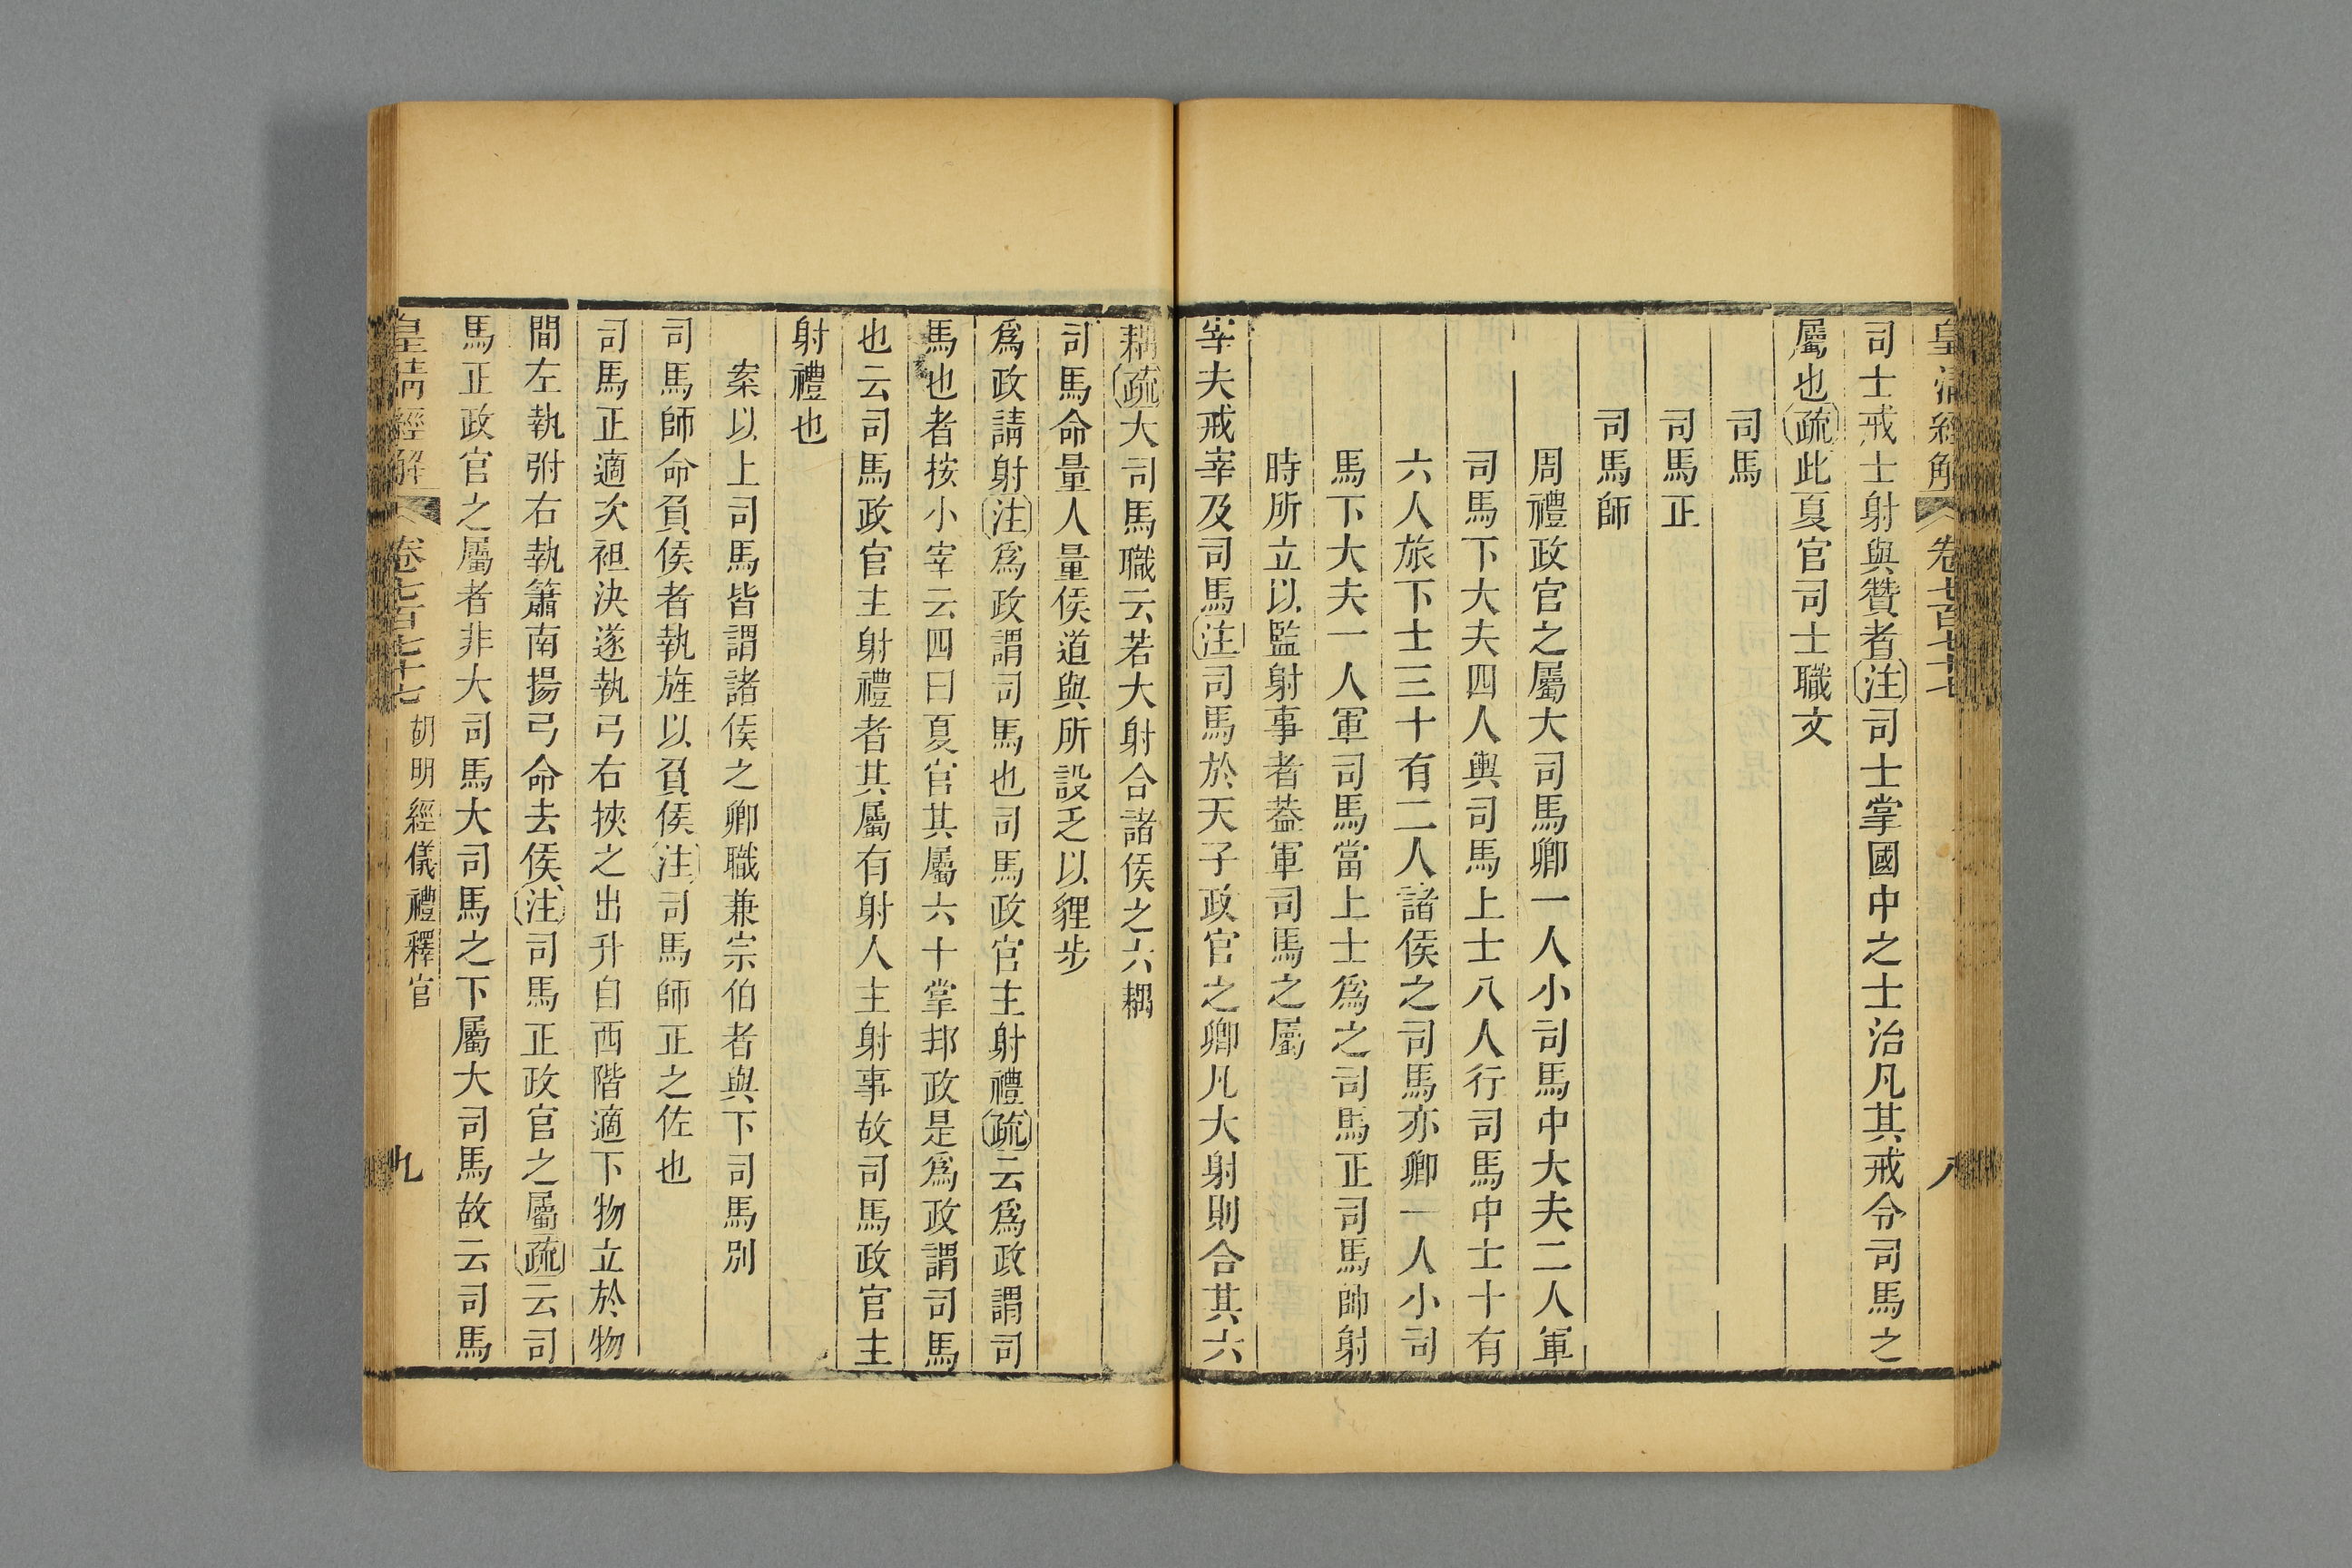 皇清經解 卷七百七十七 八
司士戒士射與贊者注司士掌國中之士治凡其戒令司馬之
屬也疏此夏官司士職文
司馬
司馬正
司馬師
周禮政官之屬大司馬卿一人小司馬中大夫二人軍
司馬下大夫四人輿司馬上士八人行司馬中士十有
六人旅下士三十有二人諸侯之司馬亦卿一人小司
馬下大夫一人軍司馬當上士爲之司馬正司馬師射
時所立以監射事者蓋軍司馬之屬
宰夫戒宰及司馬注司馬於天子政官之卿凡大射則合其六
耦疏大司馬職云若大射合諸侯之六耦
司馬命量人量侯道與所設乏以貍步
爲政請射注爲政謂司馬也司馬政官主射禮疏云爲政謂司
馬也者按小宰云四曰夏官其屬六十掌邦政是爲政謂司馬
也云司馬政官主射禮者其屬有射人主射事故司馬政官主
射禮也
案以上司馬皆謂諸侯之卿職兼宗伯者與下司馬別
司馬師命負侯者執旌以負侯注司馬師正之佐也
司馬正適次袒決遂執弓右挾之出升自西階適下物立於物
間左執弣右執簫南揚弓命去侯注司馬正政官之屬疏云司
馬正政官之屬者非大司馬大司馬之下屬大司馬故云司馬
皇清經解 卷七百七十七 胡明經儀禮釋官 九